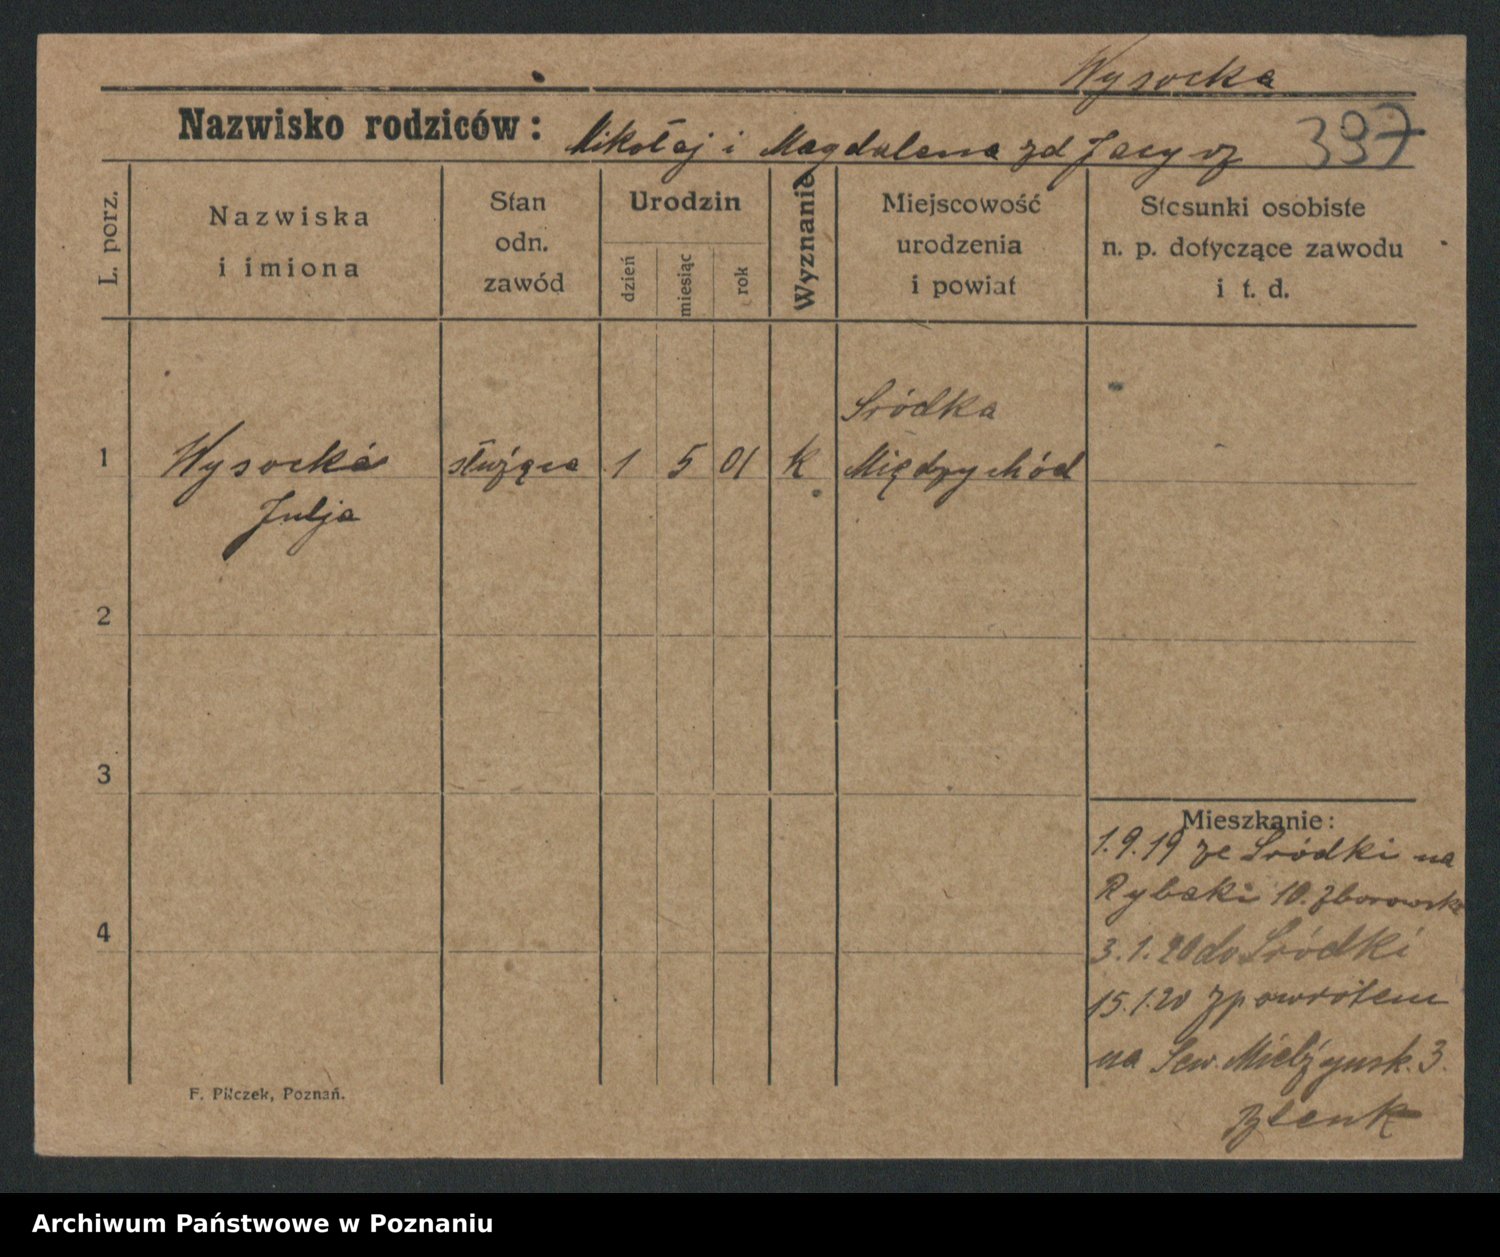 Wysocka
Nazwisko rodziców: Mikołaj i Magdalena zd 397
L. porz.
Nazwiska i imiona
Stan odn. zawód
Urodzin
dzień
miesiąc
rok
Wyznanie
Miejscowość urodzenia i powiat
Stosunki osobiste n. p. dotyczące zawodu i t. d.
Sródka
1 Wysocka służąca 1 5 01 K Międzychód
Julja
2
3
4
Mieszkanie:
1.9.19 ze Sródki na
Rybaki 10. Zborowska
3.1.20 do Sródki
15.1.20 zpowrotem
na Sew. Mielżyńsk. 3.
F. Pilczek, Poznań.
Archiwum Państwowe w Poznaniu